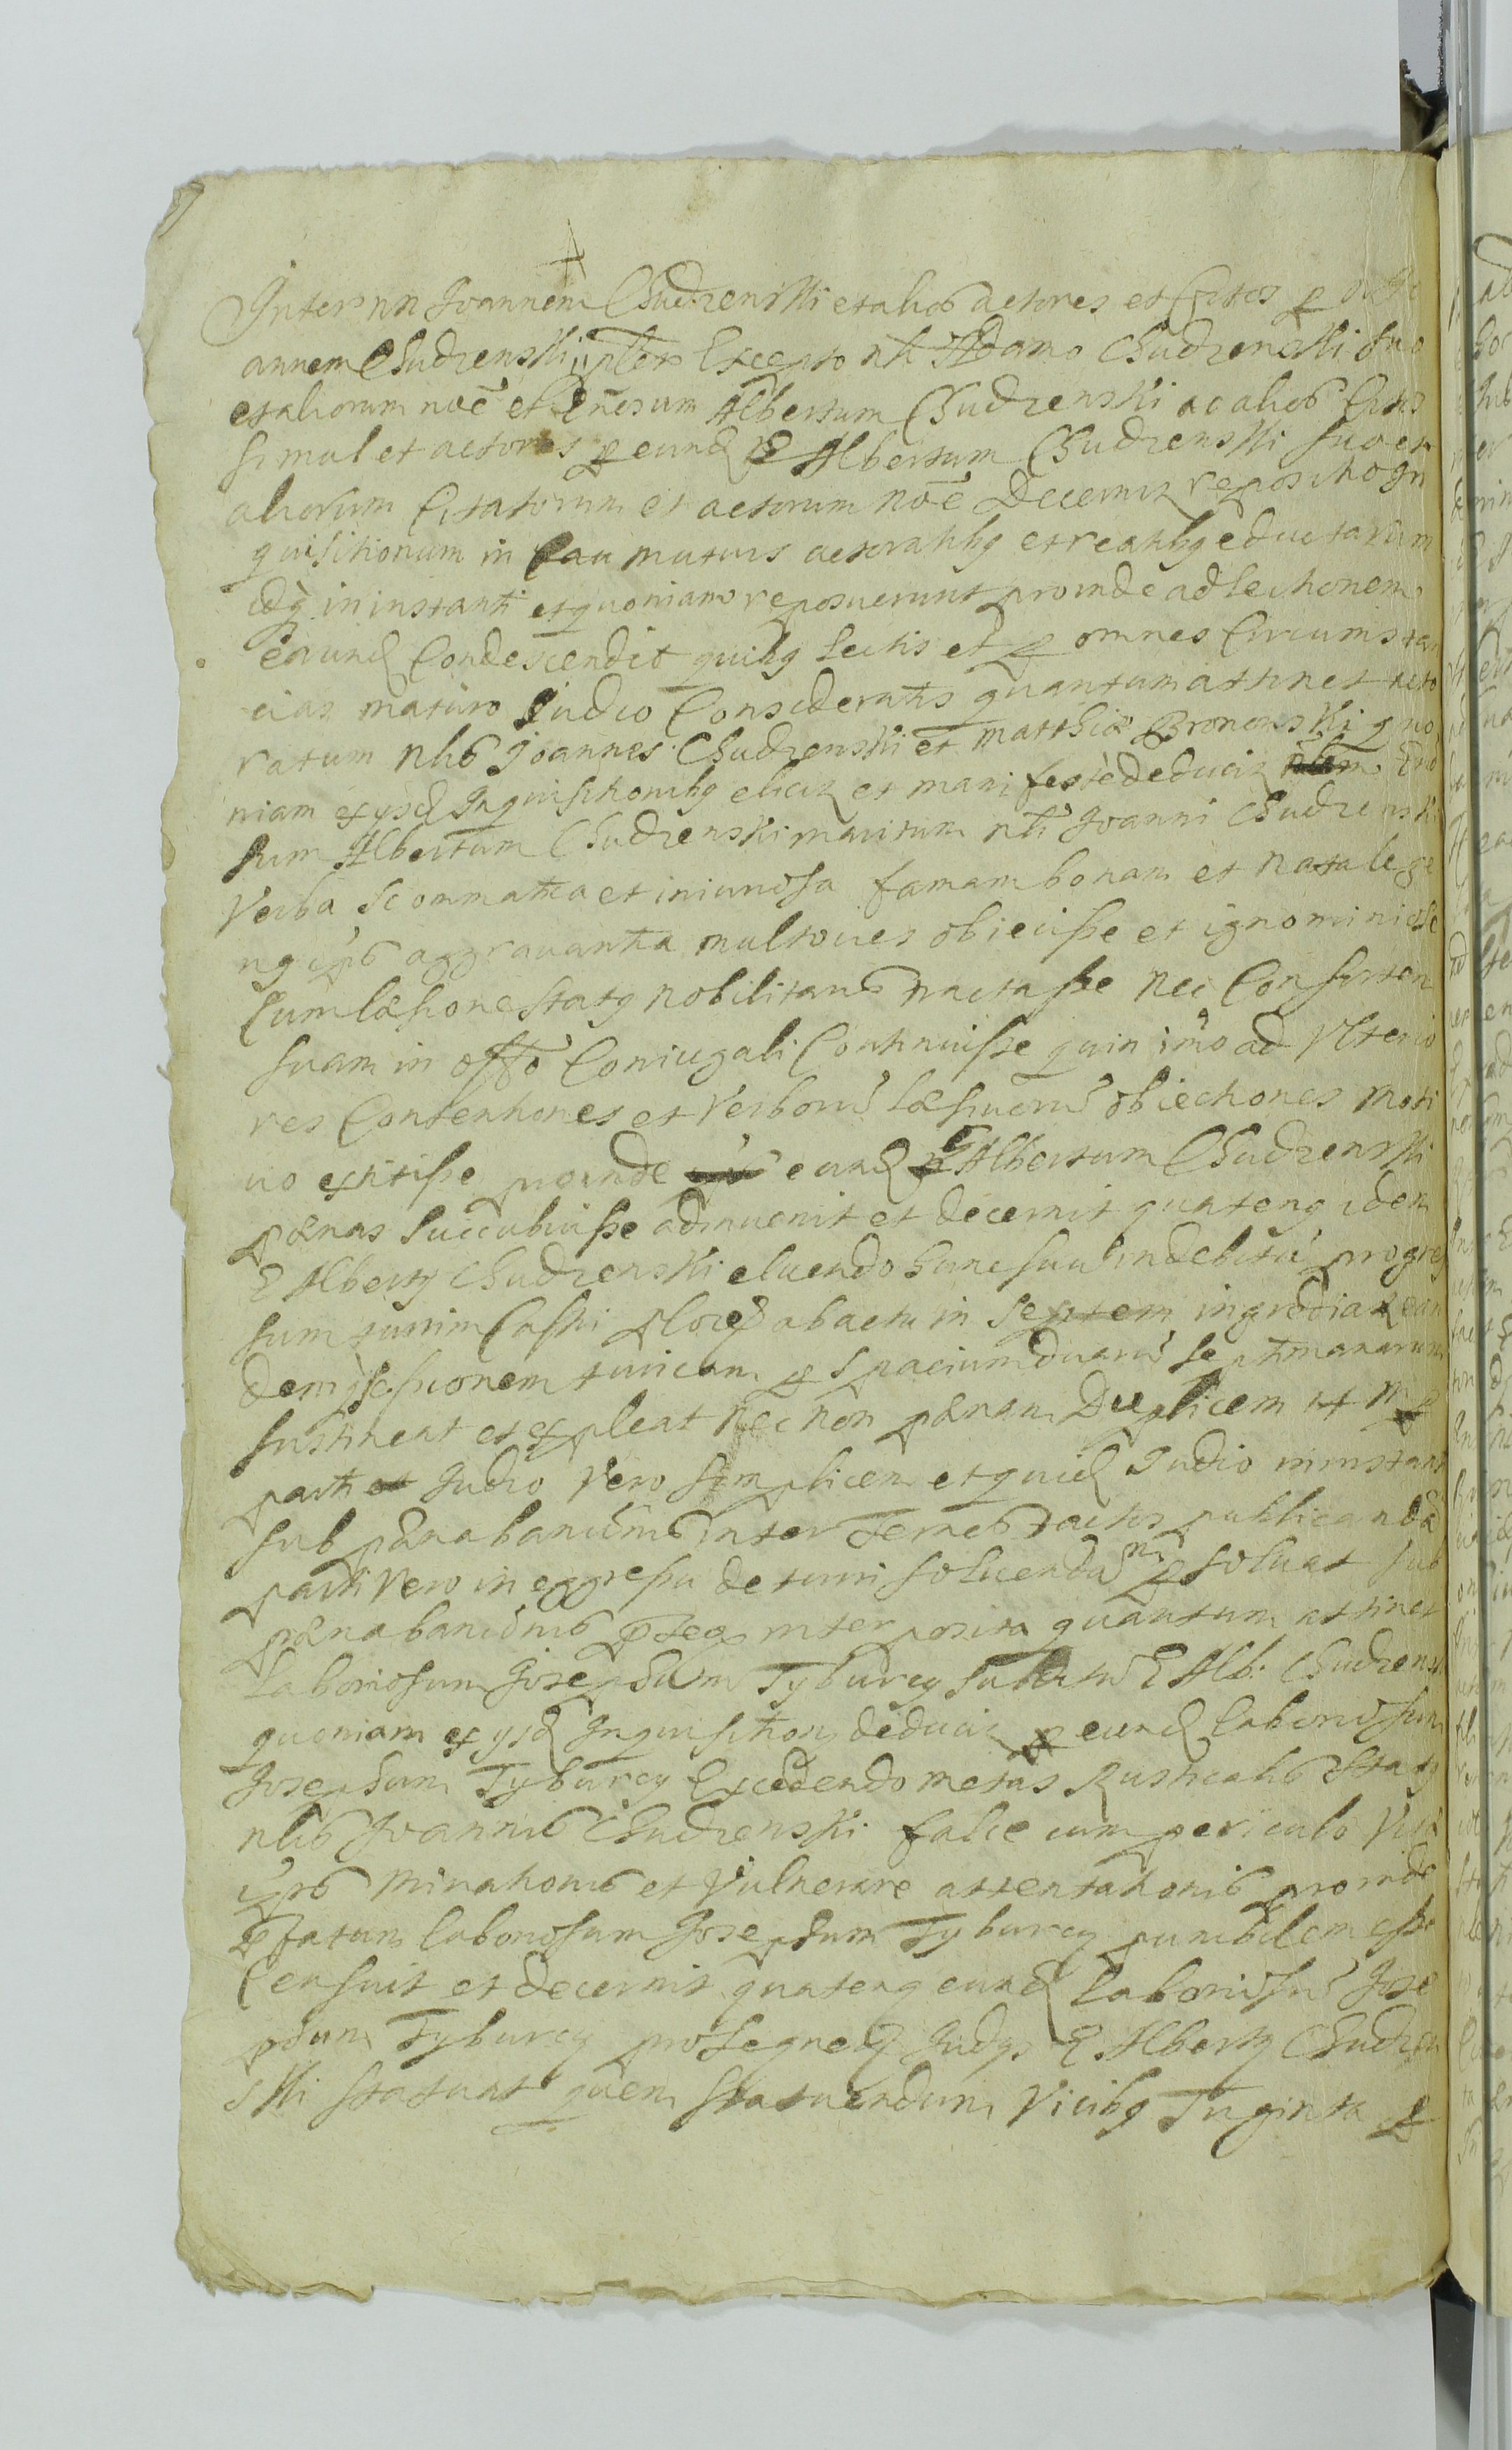 Inter nn Joannem Chudzenski et alios actores et Citos p
annem Chudzenski ipter Excepto nli Adamo Chudzenski suo
et aliorum noe et Gnesum Albertum Chudzenski ac alios Citos
simul et actores p eund G Albertum Chudzenski suo et
aliorum Citatorum et actorum noe Decernit repositio In
quisitionum in Cau mutuis actoratibq et reatibq eductarum
idq in instanti et quoniam reposuerunt proinde ad lectionem
earund Condescendit quibq lectis et p omnes Circumstan
cias maturo Judio Consideratis quantum attinet acto
ratum nlis Joannes Chudzenski et Matthiæ Bronowski quo
niam ex ysd Inquisitionibq elicit et manifeste deducit Gno
sum Albertum Chudzenski maritum nli Joanni Chudzenski
Verba Scommatica et iniuriosa famam bonam et natale ge
nq ipis aggravantia multoties obiecisse et ignominiose
Cum læsione statq nobilitaris tractasse nec Consortem
suam in offo Coniugali Continuisse quin imo ad Ulterio
res Contentiones et Verboru læsivoru obiectiones moti
vo extitisse proinde eund G Albertum Chudzenski
pænas Succubuisse adinvenit et decernit quatenq idem
G Albertq Chudzenski eluendo hunc suu indebitu progres
sum turrim Castri Ploce ab actu in Septem ingrediat ean
demq sessionem turricam p Spacium duaru septimanarum
sustineat et expleat nec non pænam Duplicem
parti Judio Vero simplicem et quid Judio in instanti
sub pæna bannionis inter Terreos tactos publicanda
parti Vero in egressu de turri solvenda p solvat sub
pæna bannionis interposita quantum attinet
laboriosum Josephum Tyburcy subditu G Alb: Chudzenski
quoniam ex ysd Inquisition deducit p eund laboriosum
Josephum Tyburcy Excedendo metas Rusticalis Statq
nlis Joannis Chudzenski falce cum periculo Vitæ
ipis minationis et Vulnerare attentationis proinde
pfatum laboriosum Josephum Tyburcy punibilem esse
Censuit et decernit quatenq eund laboriosu Jose
phum Tyburcy pro Judys G Albertq Chudzen
ski statuat quem statuendum Vicibq Triginta p